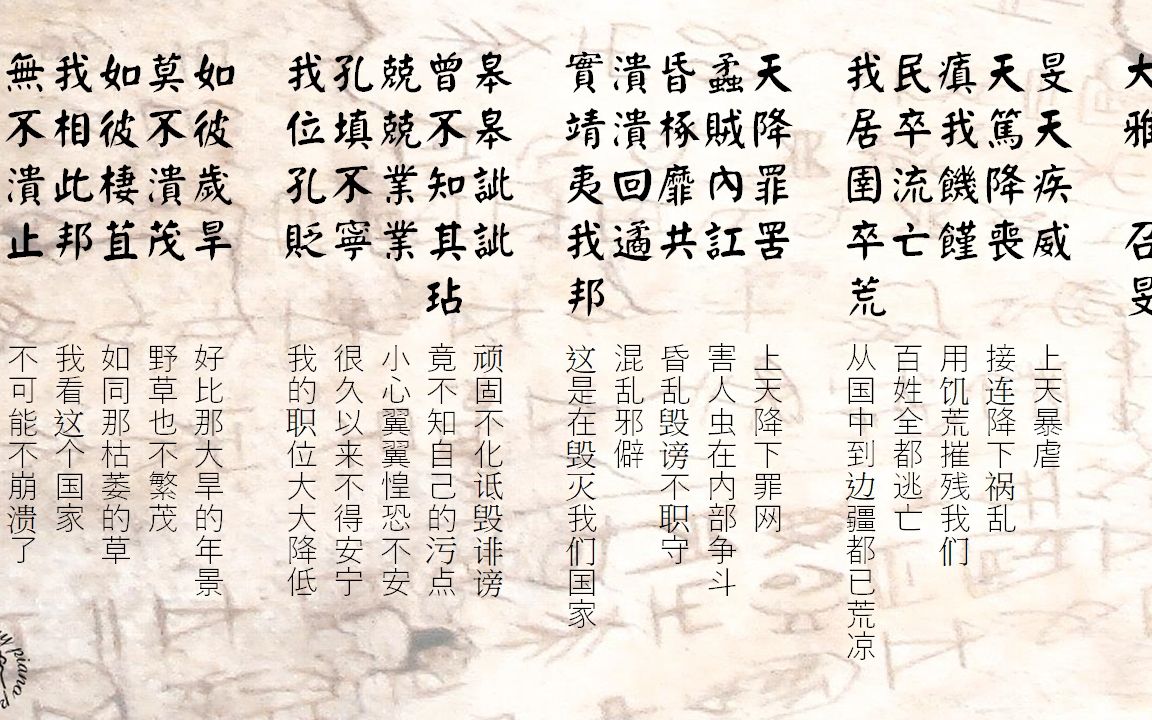 大雅 召旻
旻天疾威
天篤降喪
瘨我饑饉
民卒流亡
我居圉卒荒
上天暴虐
接连降下祸乱
用饥荒摧残我们
百姓全都逃亡
从国中到边疆都已荒凉
天降罪罟
蟊賊內訌
昏椓靡共
潰潰回遹
實靖夷我邦
上天降下罪网
害人虫在内部争斗
昏乱毁谤不职守
混乱邪僻
这是在毁灭我们国家
皋皋訿訿
曾不知其玷
兢兢業業
孔填不寧
我位孔貶
顽固不化诋毁诽谤
竟不知自己的污点
小心翼翼惶恐不安
很久以来不得安宁
我的职位大大降低
如彼歲旱
莫不潰茂
如彼棲苴
我相此邦
無不潰止
好比那大旱的年景
野草也不繁茂
如同那枯萎的草
我看这个国家
不可能不崩溃了
piano